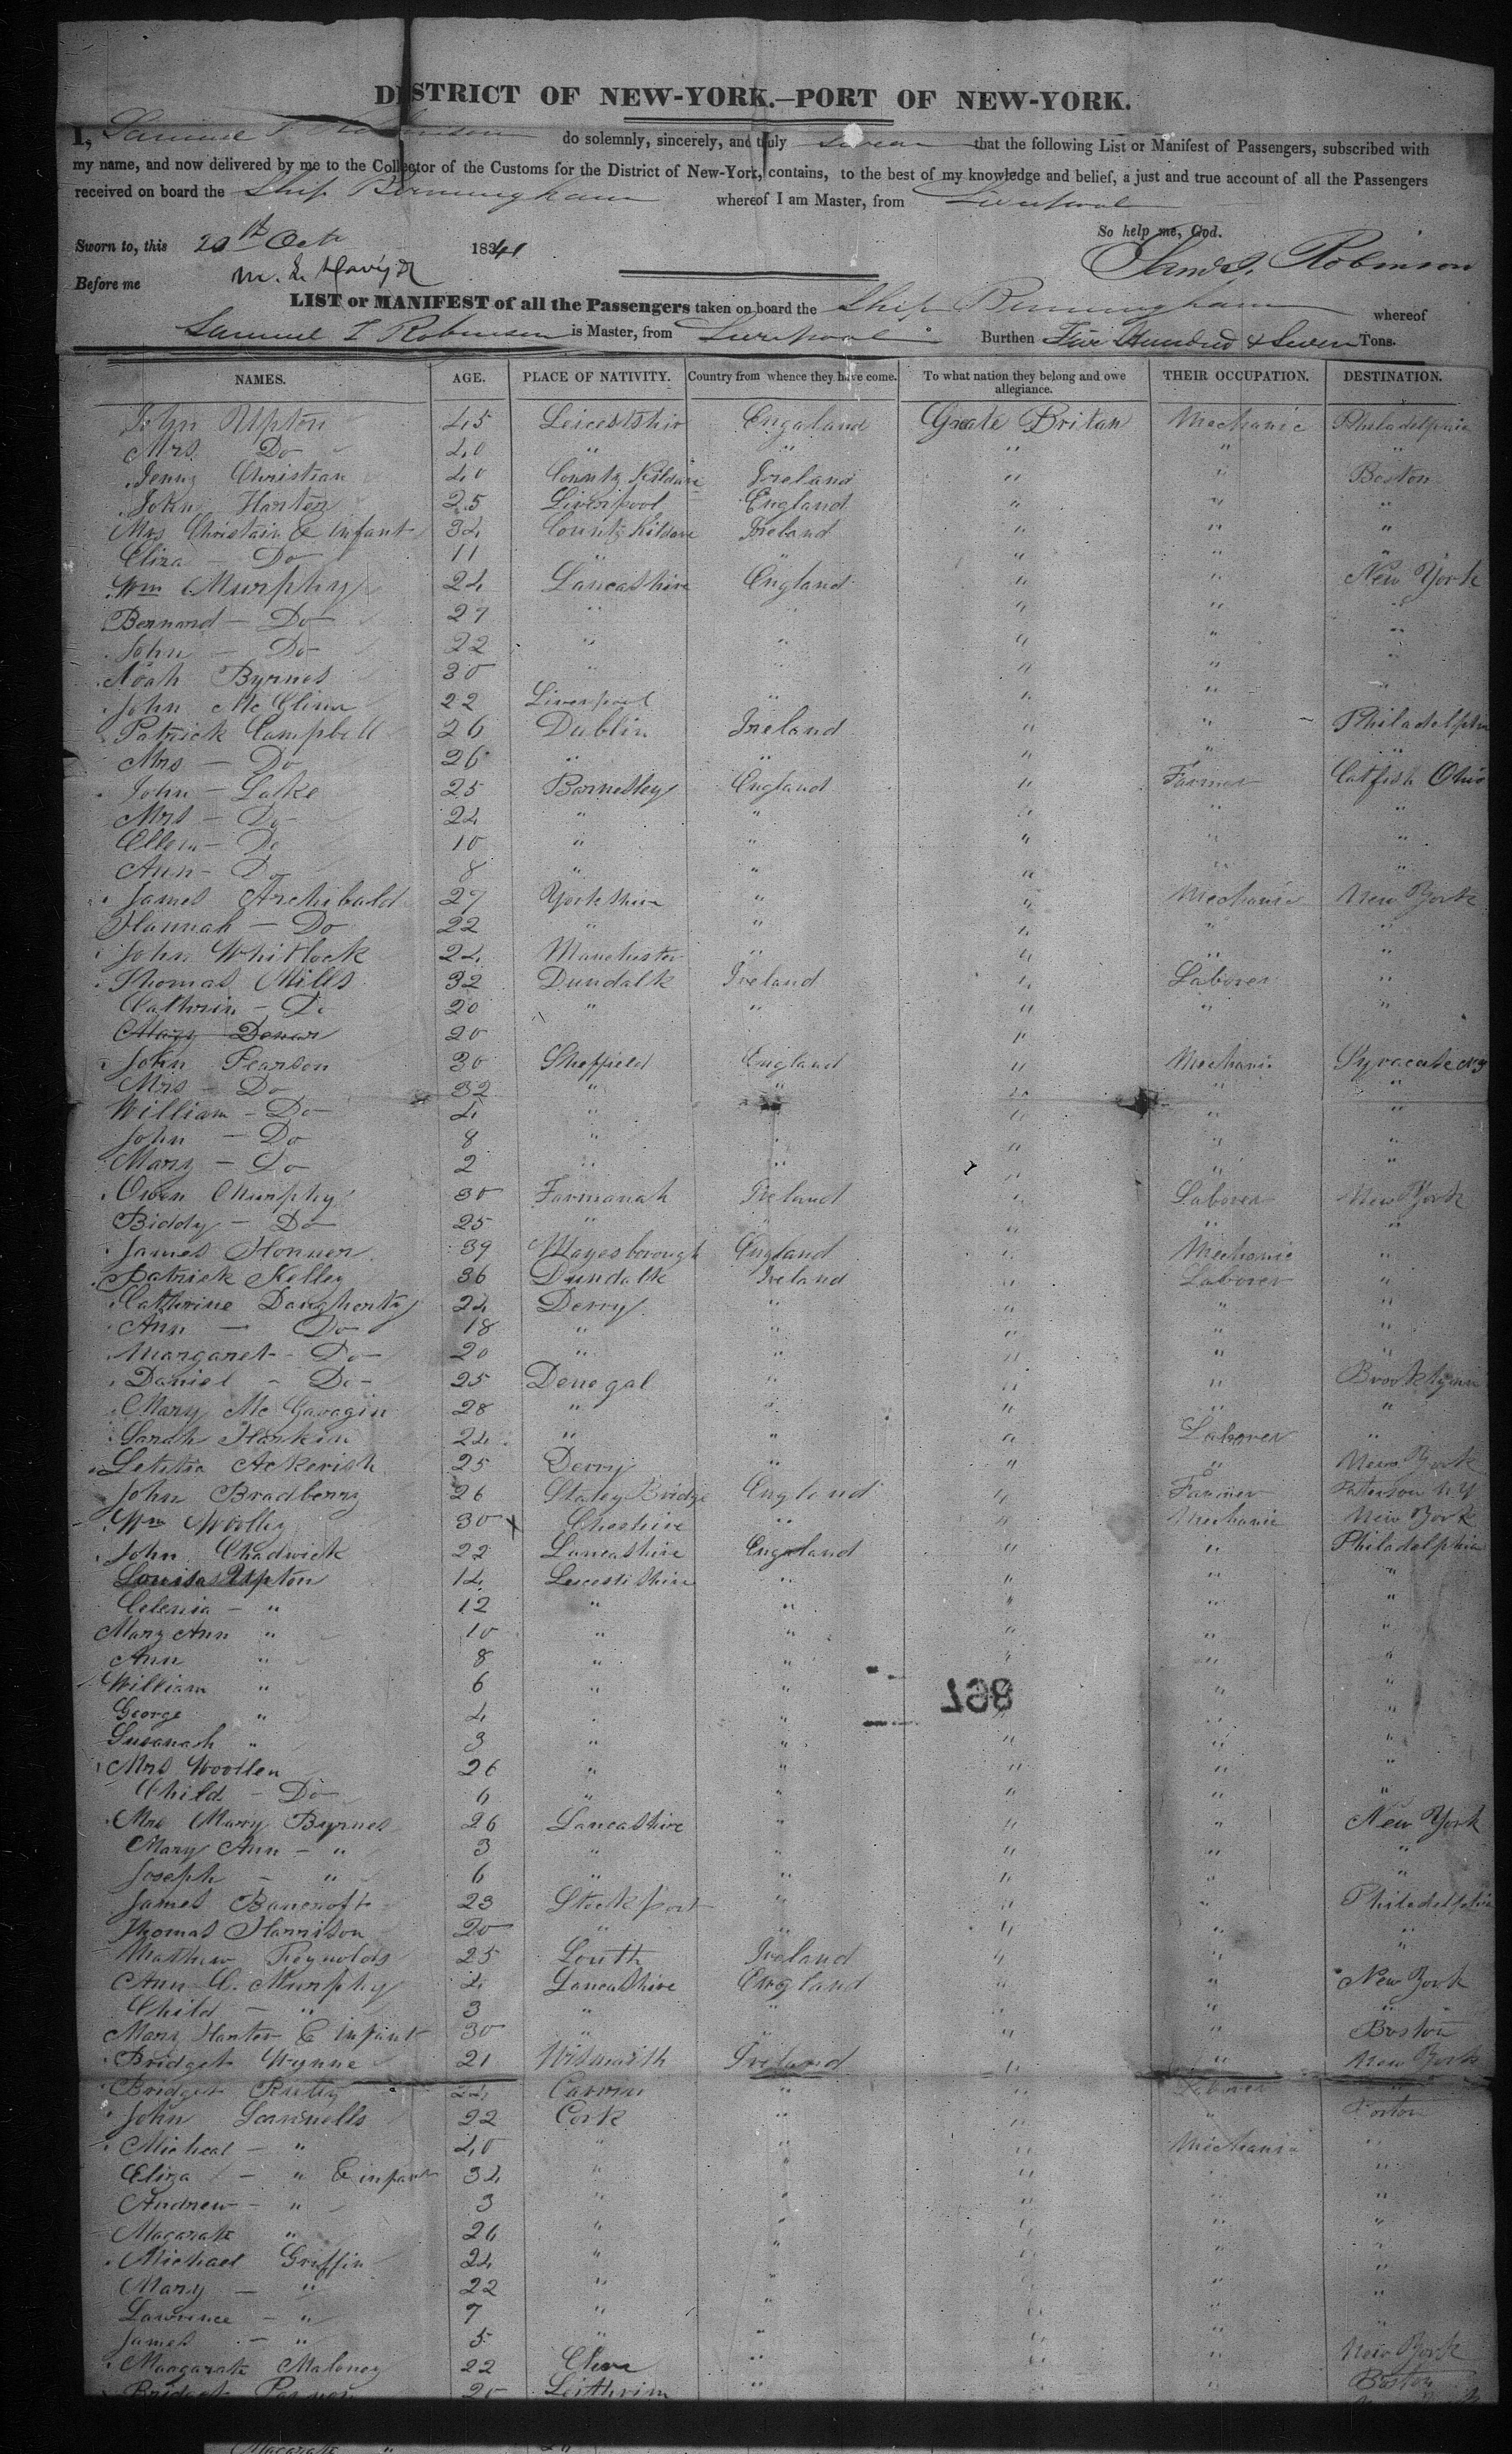 DISTRICT OF NEW-YORK.—PORT OF NEW-YORK.
I, Samuel T Robinson do solemnly, sincerely, and truly swear that the following List or Manifest of Passengers, subscribed with
my name, and now delivered by me to the Collector of the Customs for the District of New-York, contains, to the best of my knowledge and belief, a just and true account of all the Passengers
received on board the Ship Birmingham whereof I am Master, from Liverpool
So help me, God.
Sworn to, this 20th Oct 1841
Robinson
Before me
LIST or MANIFEST of all the Passengers taken on board the Ship Birmingham whereof
Samuel T Robinson is Master, from Liverpool Burthen Five Hundred & Seven Tons.
NAMES. AGE. PLACE OF NATIVITY. Country from whence they have come. To what nation they belong and owe allegiance. THEIR OCCUPATION. DESTINATION.
John Upton 45 Leicestshir Engaland Greate Britan Mechanic Philadelphia
Mrs Do 40 " " " " "
Jenny Christian 40 County Kildare Ireland " " Boston
John Harten 25 Liverpool England " " "
Mrs Christain & infant 34 County Kildare Ireland " " "
Eliza — Do 11 " " " " "
Wm Murphy 24 Lancashire England " " New York
Bernard — Do 27 " " " " "
John — Do 22 " " " " "
Noah Byrnes 30 " " " "
John Mc Clinn 22 Liverpool " " " "
Patrick Campbell 26 Dublin Ireland " " Philadelphia
Mrs — Do 26 " " " " "
John — Lake 25 Barnesley England " Farmer Catfish Ohio
Mrs — Do 24 " " " " "
Ellen — Do 10 " " " " "
Ann — Do 8 " " " " "
James Archibald 27 Yorkshire " " Mechanic New York
Hannah — Do 22 " " " " "
John Whitlock 24 Manchester " " " "
Thomas Mills 32 Dundalk Ireland " Laborer "
Cathrin — Do 20 " " " " "
Mary 20 "
John Pearson 30 Sheffield England " Mechanic Syracuse NY
Mrs — Do 32 " " " " "
William — Do 4 " " " " "
John — Do 8 " " " " "
Mary — Do 2 " " " " "
Owen Murphy 30 Farmanah Ireland " Laborer New York
Biddy — Do 25 " " " " "
James Honner 39 Mayesborough England " Mechanic "
Patrick Kelley 36 Dundalk Ireland " Laborer "
Cathrine Daugherty 24 Derry " " " "
Ann — Do 18 " " " " "
Margaret — Do 20 " " " " "
Daniel — Do — 25 Denegal " " " Brooklynn
Mary Mc Gavagin 28 " " " " "
Sarah Harkin 24 " " " Laborer "
Letitia Ackerish 25 Derry " " " New York
John Bradberry 26 Staley Bridge England " Farmer Paterson NY
Wm Woolley 30 Cheshire " " Mechanic New York
John Chadwick 22 Lancashire Engaland " " Philadelphia
Louisa Upton 14 Leicestishire " " " "
Celenia — " 12 " " " " "
Mary Ann " 10 " " " " "
Ann " 8 " " " " "
William " 6 " " " " "
867
George " 4 " " " " "
Susanah " 3 " " " " "
Mrs Woollen 26 " " " " "
Child — Do 6 " " " " "
Mrs Mary Byrnes 26 Lancashire " " " New York
Mary Ann — " 3 " " " " "
Joseph — " 6 " " " " "
James Bancroft 23 Stockport " " " Philadelphia
Thomas Harrison 20 " " " " "
Matthew Reynolds 25 Louth Ireland " " "
Ann C. Murphy 4 Lancashire England " " New York
Child — " 3 " " " " "
Mary Harten & infant 30 " " " " Boston
Bridget Wynne 21 Ireland " " New York
Bridget 24 Cavin " " Laborer "
John Scannells 22 Cork " " " Boston
Micheal — " 40 " " " Mechanic "
Eliza — " & infant 34 " " " " "
Andrew — " 3 " " " " "
Magarate " 26 " " " " "
Michael Griffin 24 " " " " "
Mary — " 22 " " " " "
Lawrence — " 7 " " " " "
James — " 5 " " " " "
Maagarate Maloney 22 Clare " " " New York
Bridget 20 Leithrim " " " Boston
Magarate "